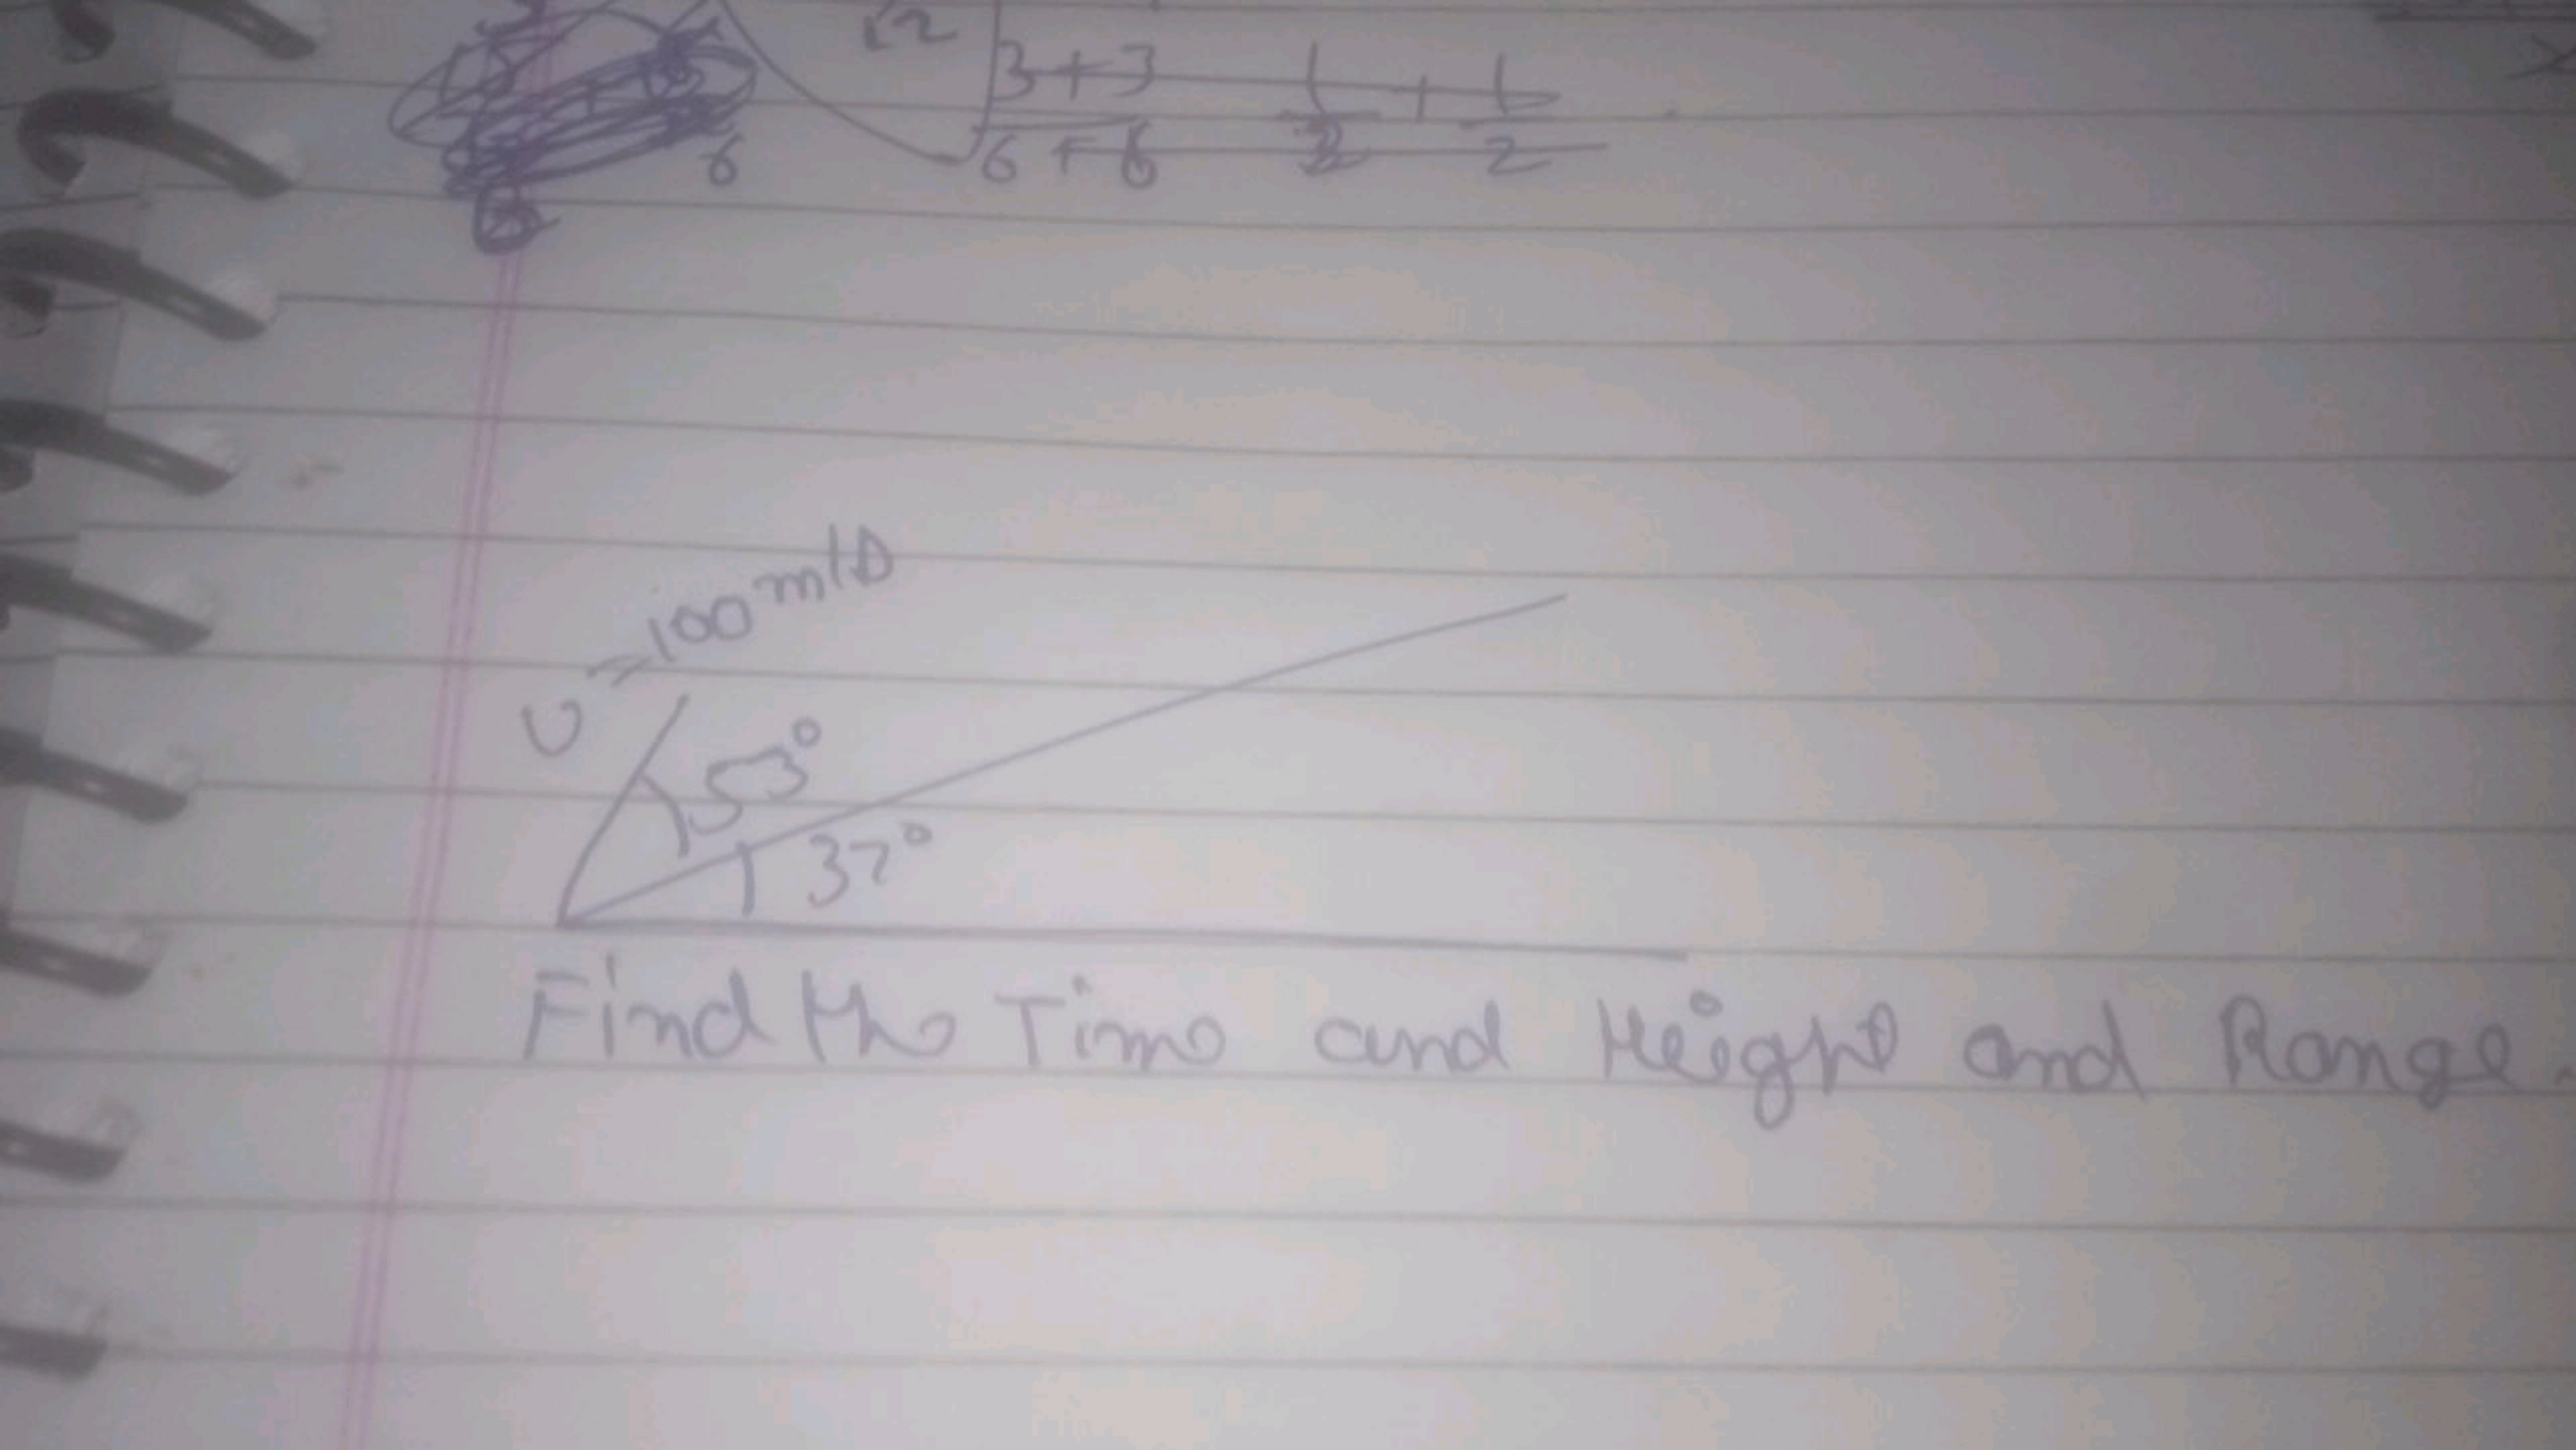 √2
3+3 1 + 1
6+6 2 2
6
U = 100 m/s
53°
37°
Find the Time and Height and Range.